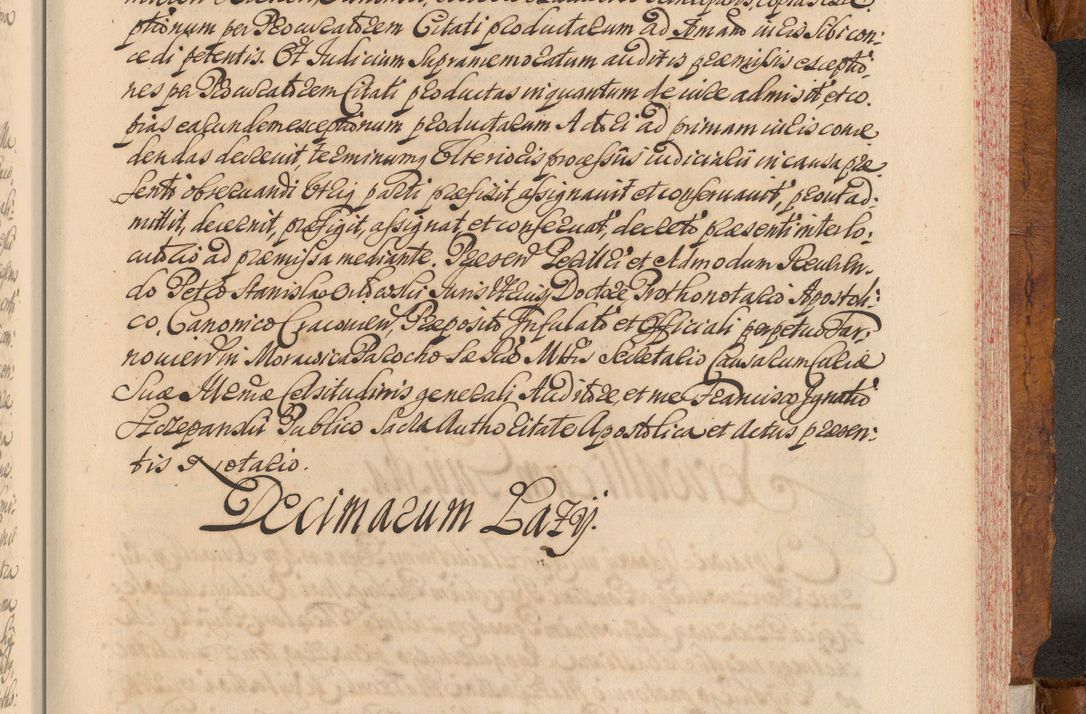 ptionum per Procuratorem Citati productarum ad Amam iuris sibi con:
cedi petentis. Et Judicium supramemoratum auditis præmissis exceptio
nes per Procuratorem Citati productas in quantum de iure admisit, et co:
pias earundem exceptionum productarum Actori ad primam iuris conce
dendas decrevit, terminumq Ulterioris processûs iudicialis in causa præ
senti observandi Utriq parti præfixit assignavit et conservavit, prout ad:
mittit, decernit, præfigit, assignat, et conservat, decreto præsenti interlo:
cutorio ad præmissa mediante. Præsen Perilli et Admodum Reveren:
do Petro Stanislao Orłowski Juris Utriusq Doctore Prothonotario Apostoli:
co, Canonico Cracovien, Præposito Infulato et Officiali perpetuo Tar:
novien, in Morawica Parocho Sæ Ræ Mttis Secretario Causarum Curiæ
Suæ Celsitudinis generali Auditore, et me Francisco Ignatio
Szczepanski Publico Sacra Authoritate Apostolica et Actus præsen:
tis Notario.
Decimarum Łazy.